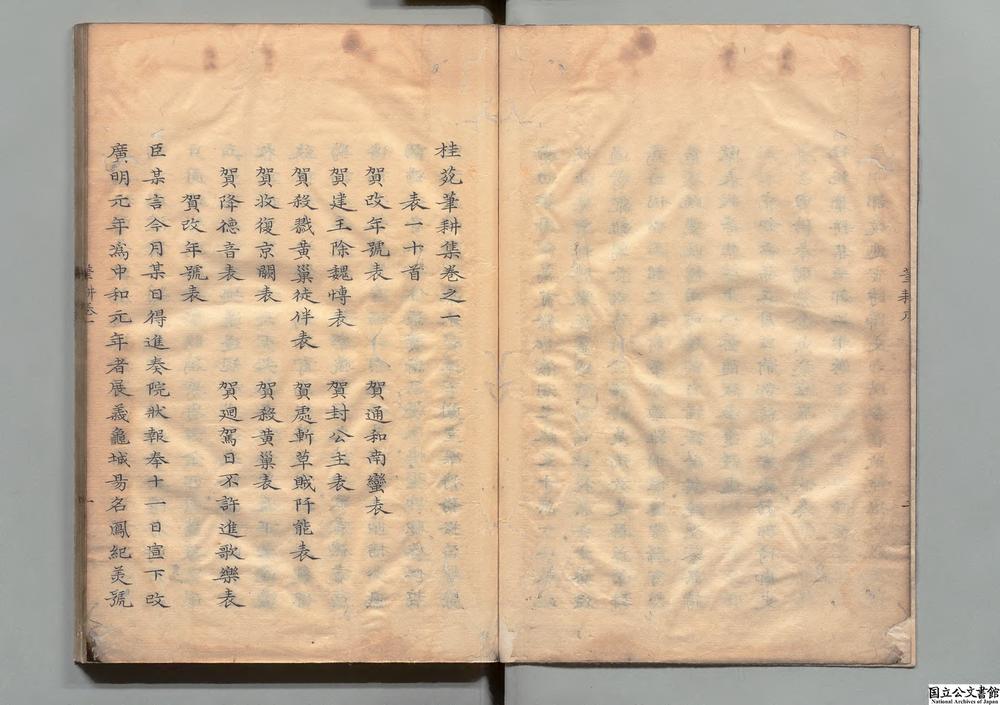 桂苑筆耕集卷之一
表一十首
賀改年號表 賀通和南蠻表
賀建王除魏愽表 賀封公主表
賀殺戮黃巢徒伴表 賀處斬草賊阡能表
賀收復京闕表 賀殺黃巢表
賀降德音表 賀廻駕日不許進歌樂表
賀改年號表
臣某言今月某日得進奏院狀報奉十一日宣下改
廣明元年爲中和元年者展義龜城昜名鳳紀美號
国立公文書館
National Archives of Japan